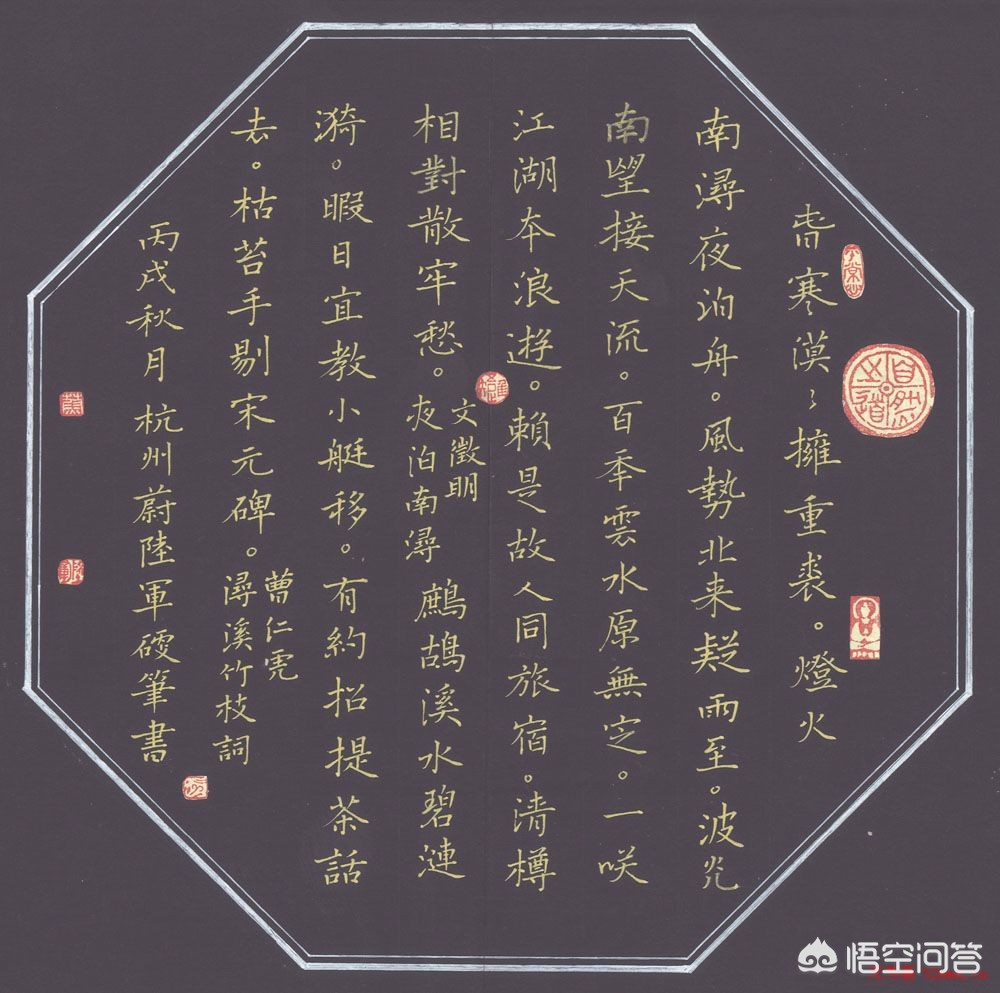 春寒漠〻擁重裘。燈火
南潯夜泊舟。風勢北来疑雨至。波光
南望接天流。百年雲水原無定。一咲
江湖本浪遊。賴是故人同旅宿。清樽
相對散牢愁。文徵明
夜泊南潯 鷓鴣溪水碧漣
漪。暇日宜教小艇移。有約招提茶話
去。枯苔手剔宋元碑。曹仁虎
潯溪竹枝詞
丙戌秋月杭州蔚陸軍硬筆書
自然之道
平常心
悟空问答